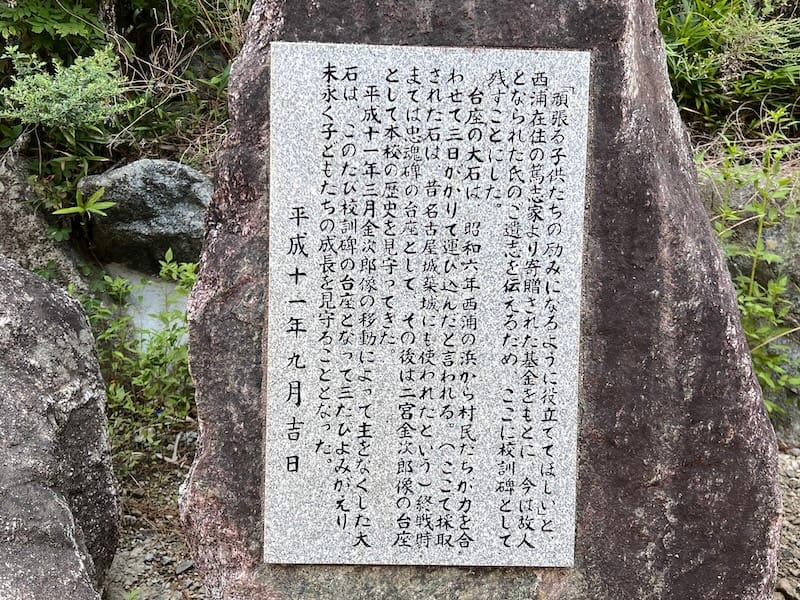 「頑張る子供たちの励みになるように役立ててほしいと
西浦在住の篤志家より寄贈された基金をもとに 今は故人
となられた氏のご遺志を伝えるため ここに校訓碑として
残すことにした。
台座の大石は 昭和六年西浦の浜から村民たちが力を合
わせて三日がかりで運び込んだと言われる。(ここで採取
された石は 昔名古屋城築城にも使われたという)終戦時
までは忠魂碑の台座として その後は二宮金次郎像の台座
として本校の歴史を見守ってきた。
平成十一年三月金次郎像の移動によって主をなくした大
石は このたび校訓碑の台座となって三たびよみがえり
末永く子どもたちの成長を見守ることとなった。
平成十一年九月吉日